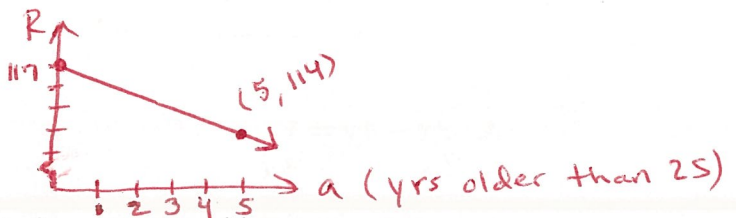 R
117
(5, 114)
1 2 3 4 5
a (yrs older than 25)